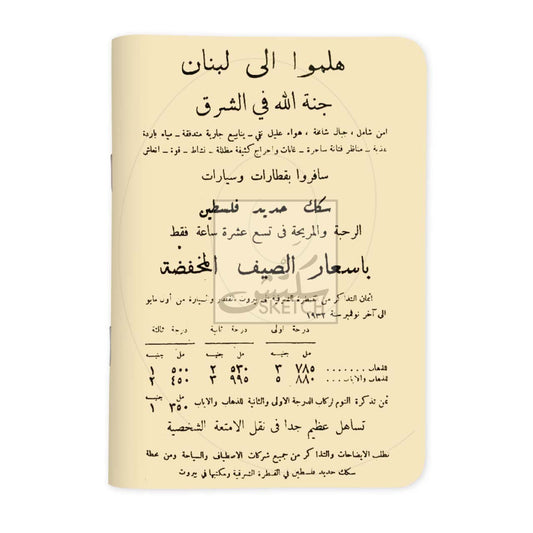 هلموا الى لبنان
جنة الله في الشرق
امن شامل ، جبال شاهقة ، هواء عليل نقي – ينابيع جارية متدفقة – مياه باردة
عذبة – مناظر فتانة ساحرة – غابات واحراج كثيفة مظللة – نشاط – قوة – انعاش
سافروا بقطارات وسيارات
سكك حديد فلسطين
الرحبة والمريحة فى تسع عشرة ساعة فقط
باسعار الصيف المخفضة
اثمان التذاكر من القنطرة الشرقية الى بيروت بالقطار والسيارة من أول مايو
الى آخر نوفمبر سنة ١٩٣٢
درجة اولى درجة ثانية درجة ثالثة
مل جنيه مل جنيه مل جنيه
للذهاب ٧٨٥ ٣ ٥٣٠ ٢ ٥٠٠ ١
للذهاب والاياب ٨٨٠ ٥ ٩٩٥ ٣ ٤٥٠ ٢
مل جنيه
ثمن تذكرة النوم لركاب الدرجة الاولى والثانية للذهاب والاياب ٣٥٠ ١
تساهل عظيم جدا فى نقل الامتعة الشخصية
تطلب الايضاحات والتذاكر من جميع شركات الاصطياف والسياحة ومن محطة
سكك حديد فلسطين في القنطرة الشرقية ومكتبها في بيروت
سكتش
SKETCH